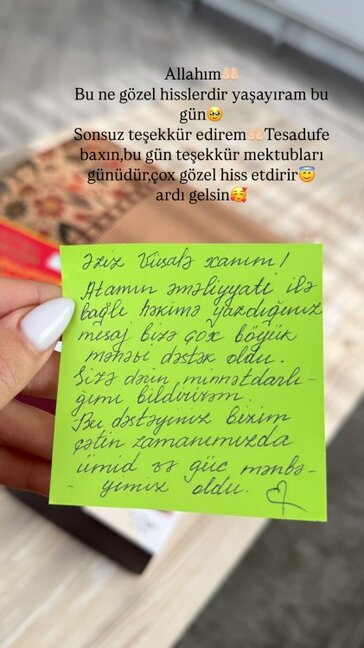 Allahım🤲🏻
Bu ne gözel hisslerdir yaşayıram bu
gün🥹
Sonsuz teşekkür edirem🤲🏻Tesadufe
baxın,bu gün teşekkür mektubları
günüdür,çox gözel hiss etdirir😇
ardı gelsin🥰
Əziz Vüsalə xanım!
Atamın əməliyyatı ilə
bağlı həkimə yazdığınız
mesaj bizə çox böyük
mənəvi dəstək oldu.
Sizə dərin minnətdarlı-
ğımı bildirirəm.
Bu dəstəyiniz bizim
çətin zamanımızda
ümid və güc mənbə-
yimiz oldu.